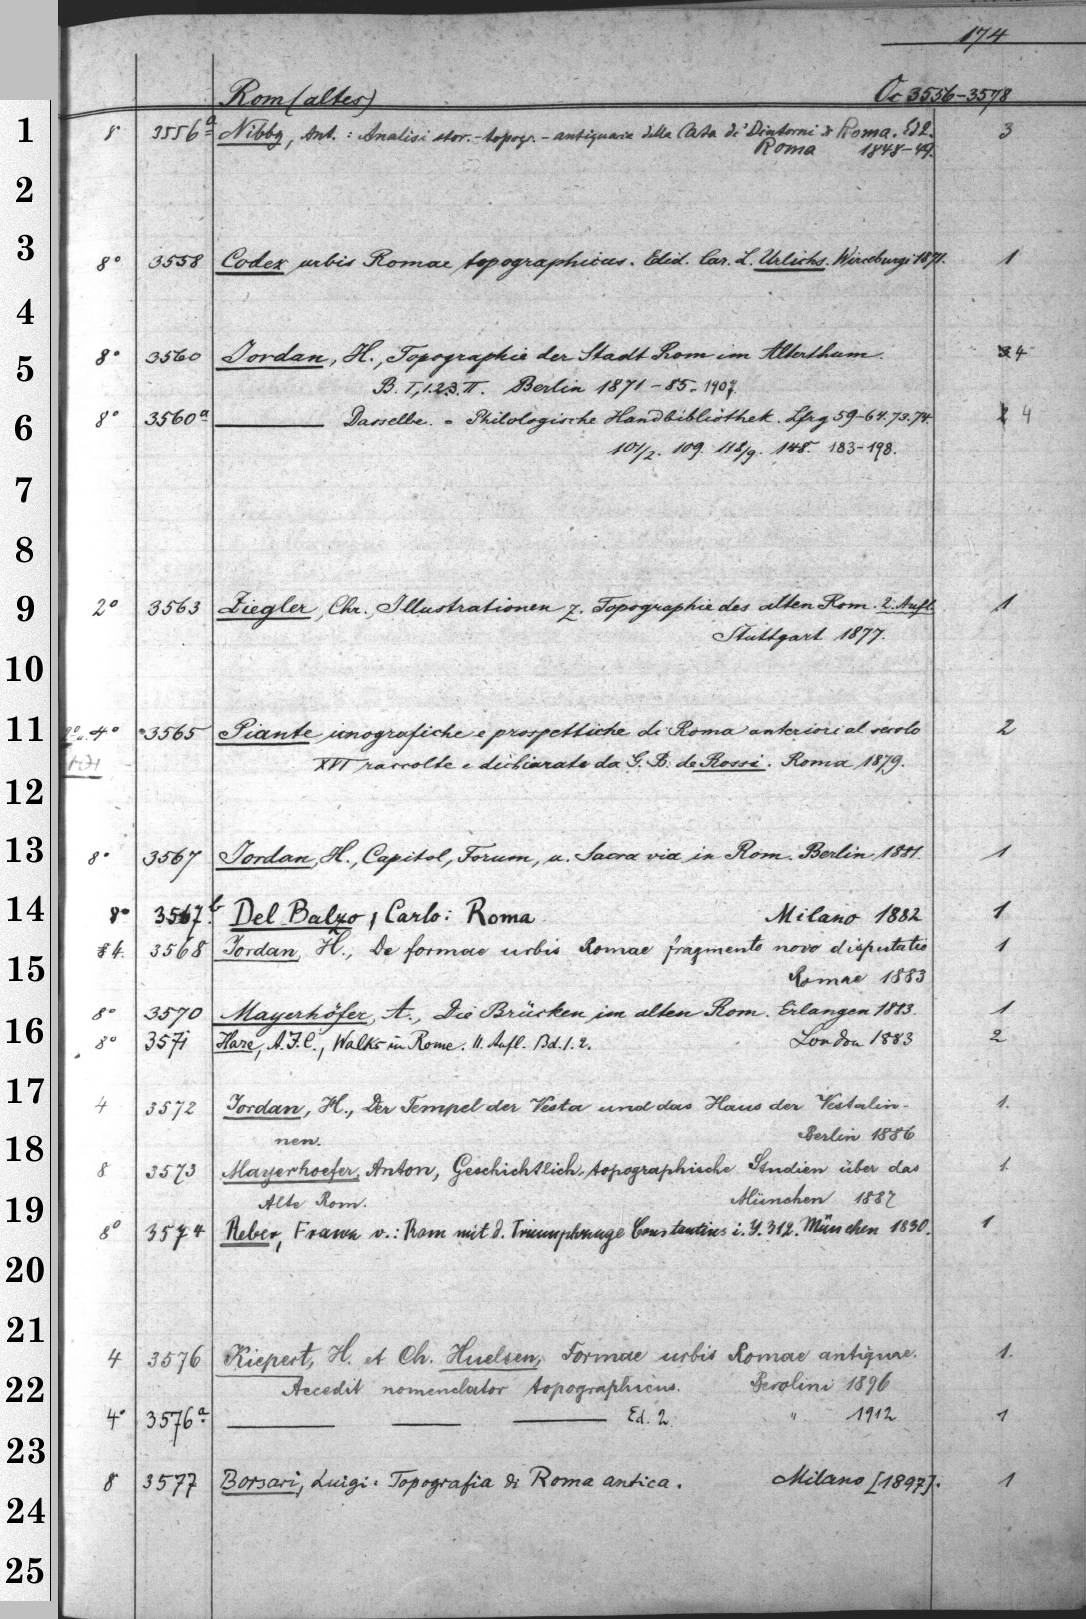 174
Rom (altes) Oc 3556-3578
1 8 3556a Nibby, Ant.: Analisi stor.-topogr.-antiquaria della Carta de' Dintorni di Roma. Ed 2. 3
Roma 1848-49.
2
3 8° 3558 Codex urbis Romae topographicus. Edid. Car. L. Urlichs. Wirceburgi 1871. 1
4
5 8° 3560 Jordan, H., Topographie der Stadt Rom im Alterthum. 4
B. I,1.2.3.II. Berlin 1871-85-1907.
6 8° 3560a ——— Dasselbe. = Philologische Handbibliothek. Lfrg 59-64.73.74. 4
101/2. 109. 118/9. 148. 183-198.
7
8
9 2° 3563 Ziegler, Chr., Illustrationen z. Topographie des alten Rom. 2. Aufl. 1
Stuttgart 1877.
10
11 2° u. 4° 3565 Piante icnografiche e prospettiche di Roma anteriori al secolo 2
XVI raccolte e dichiarate da G. B. de Rossi. Roma 1879.
12
13 8° 3567 Jordan, H., Capitol, Forum, u. Sacra via in Rom. Berlin 1881. 1
14 8° 3567b Del Balzo, Carlo: Roma Milano 1882 1
15 4. 3568 Jordan, H., De formae urbis Romae fragmento novo disputatio 1
Romae 1883
16 8° 3570 Mayerhöfer, A., Die Brücken im alten Rom. Erlangen 1883. 1
8° 3571 Hare, A.J.C., Walks in Rome. 11. Aufl. Bd. 1. 2. London 1883 2
17 4 3572 Jordan, H., Der Tempel der Vesta und das Haus der Vestalin- 1.
nen. Berlin 1886
18 8 3573 Mayerhoefer, Anton, Geschichtlich-topographische Studien über das 1.
19 Alte Rom. München 1887
8° 3574 Reber, Franz v.: Rom mit d. Triumphzuge Constantius i. J. 312. München 1830. 1
20
21
4 3576 Kiepert, H. et Ch. Huelsen, Formae urbis Romae antiquae. 1.
22 Accedit nomenclator topographicus. Berolini 1896
4° 3576a ——— ——— ——— Ed. 2 " 1912 1
23
8 3577 Borsari, Luigi: Topografia di Roma antica. Milano [1897]. 1
24
25